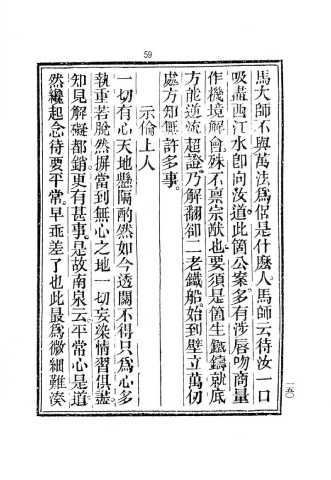 59
馬大師不與萬法爲侶是什麼人馬師云待汝一口
吸盡西江水卽向汝道此箇公案多有涉唇吻商量
作機境解會殊不稟宗猷也要須是箇生鐵鑄就底
方能逆流超證乃解翻卻二老鐵船始到壁立萬仞
處方知無許多事
示倫上人
一切有心天地懸隔酌然如今透關不得只爲心多
執重若脫然摒當到無心之地一切妄染情習俱盡
知見解礙都銷更有甚事是故南泉云平常心是道
然纔起念待要平常早乖差了也此最爲微細難湊
一五〇